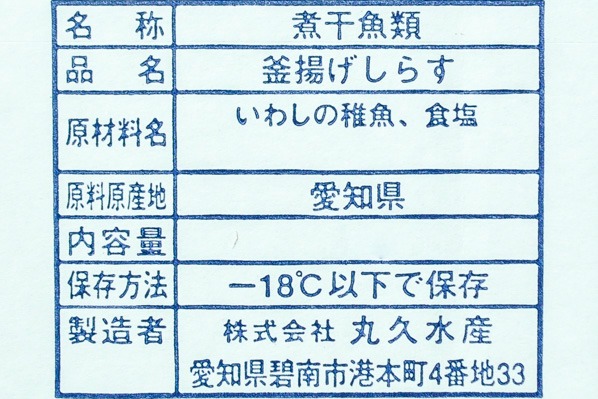 名称 煮干魚類
品名 釜揚げしらす
原材料名 いわしの稚魚、食塩
原料原産地 愛知県
内容量
保存方法 －18℃以下で保存
製造者 株式会社 丸久水産
愛知県碧南市港本町4番地33